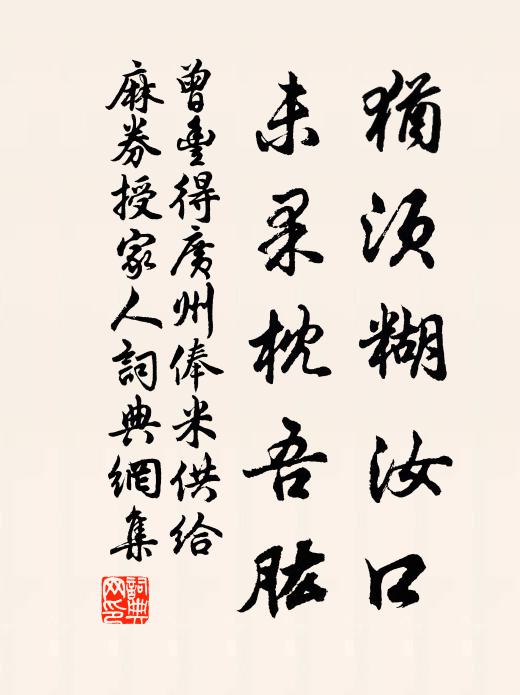 猶須糊汝口
未果枕吾肱
曾豊得廣州俸米供給
麻券授家人詞典網集
詞典网印